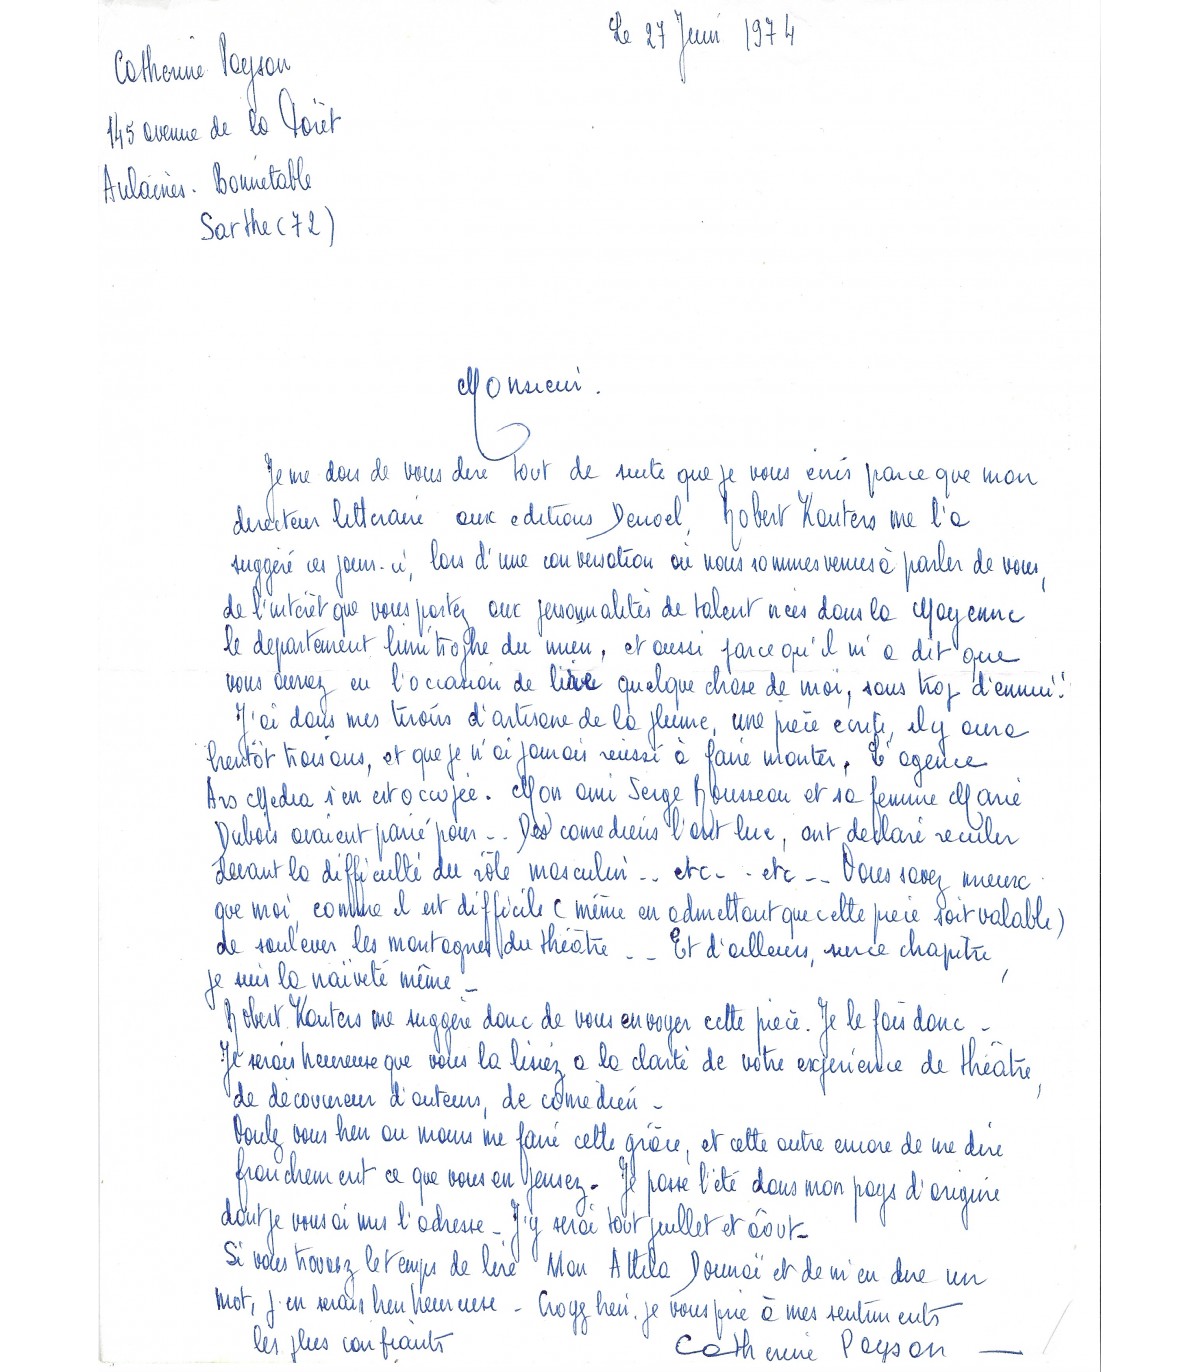 Le 27 Juin 1974
Catherine Paysan
145 avenue de la Forêt
Aulaines. Bonnétable
Sarthe (72)
Monsieur.
Je me dois de vous dire tout de suite que je vous écris parce que mon
directeur littéraire aux editions Denoel, Robert Kanters me l'a
suggéré ces jours-ci, lors d'une conversation où nous sommes venus à parler de vous,
de l'intérêt que vous portez aux personnalités de talent nées dans la Mayenne
le departement limitrophe du mien, et aussi parce qu'il m'a dit que
vous auriez eu l'occasion de lire quelque chose de moi, sans trop d'ennui!
J'ai dans mes tiroirs d'artisane de la plume, une pièce écrite, il y aura
bientôt trois ans, et que je n'ai jamais réussi à faire monter. L'agence
Ars Media s'en est occupée. Mon ami Serge Rousseau et sa femme Marie
Dubois avaient parié pour -- Des comediens l'ont lue, ont declaré reculer
devant la difficulté du rôle masculin -- etc - - etc -- Vous savez mieux
que moi, comme il est difficile (même en admettant que cette pièce soit valable)
de soulever les montagnes du théâtre -- Et d'ailleurs, sur ce chapitre,
je suis la naïveté même -
Robert Kanters me suggère donc de vous envoyer cette pièce. Je le fais donc -
Je serais heureuse que vous la lisiez a la clarté de votre expérience de théâtre,
de découvreur d'auteurs, de comédien -
Voulez vous bien au moins me faire cette grâce, et cette autre encore de me dire
franchement ce que vous en pensez - Je passe l'été dans mon pays d'origine
dont je vous ai mis l'adresse - J'y serai tout juillet et août -
Si vous trouvez le temps de lire Mon Attila Dounaï et de m'en dire un
mot, j'en serais bien heureuse - Croyez bien, je vous prie à mes sentiments
les plus confiants
Catherine Paysan —